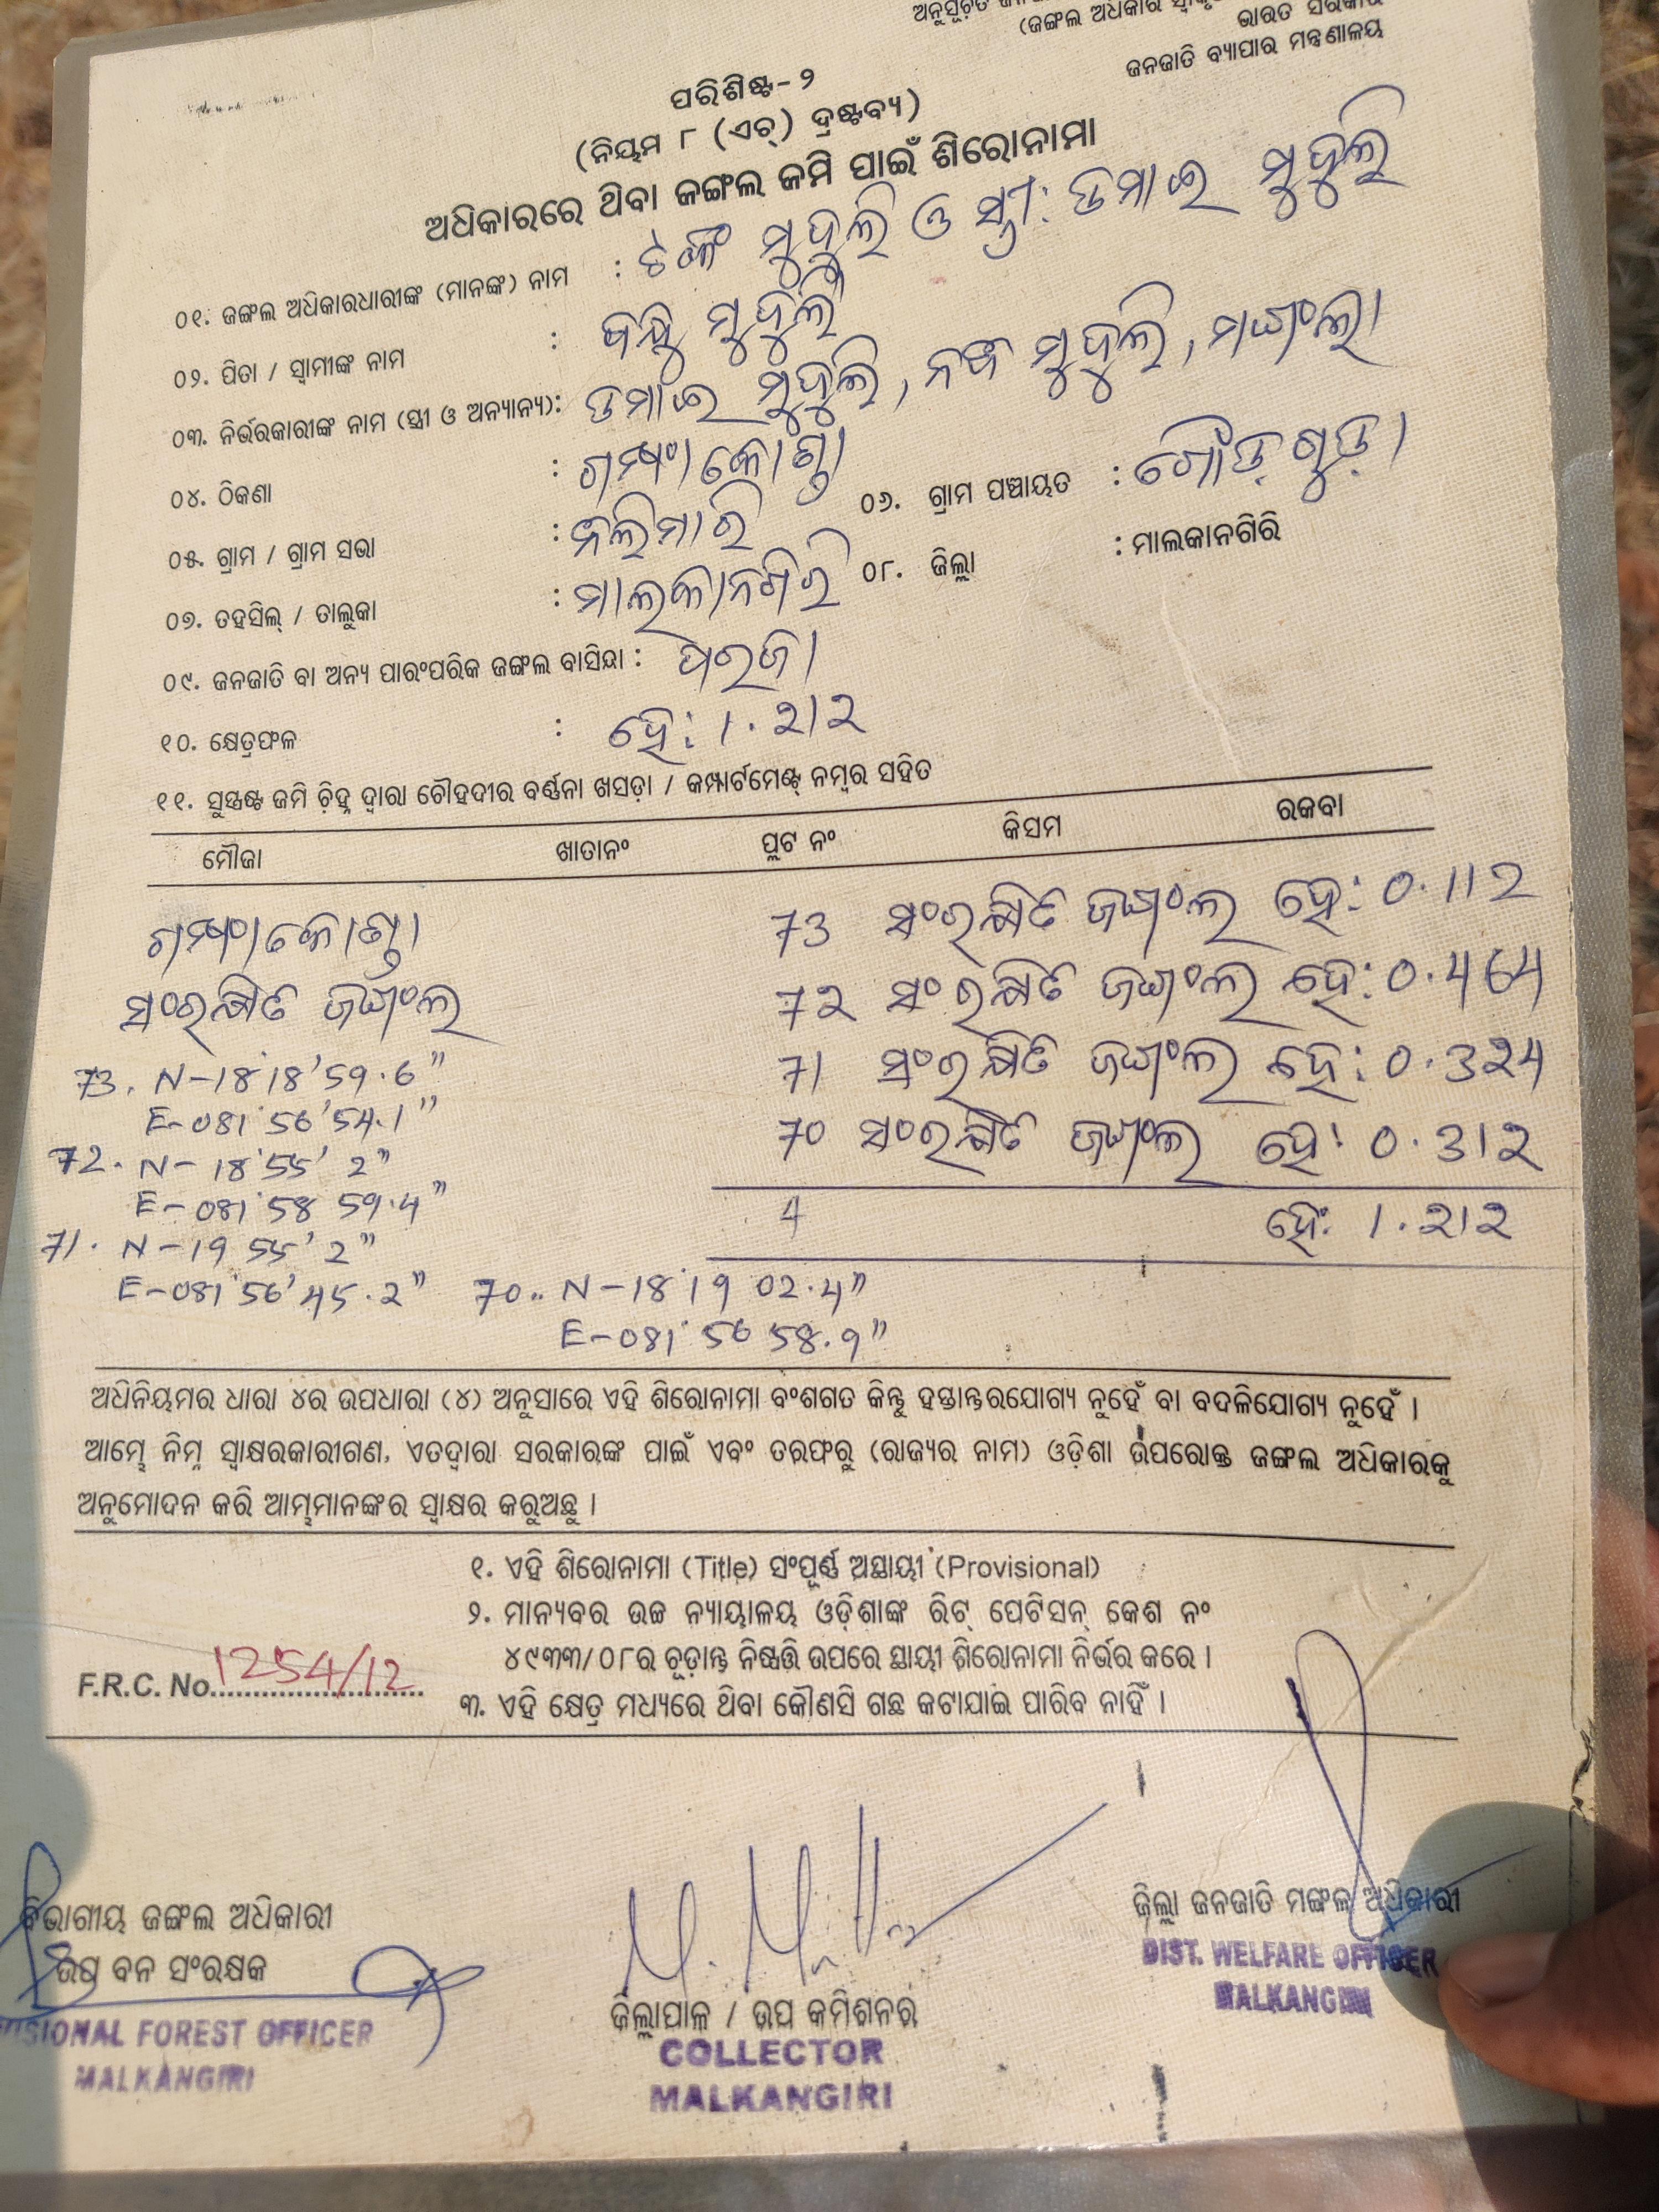 ଅନୁସୂଚିତ
(ଜଙ୍ଗଲ ଅଧିକାର
ଭାରତ ସରକାର
ଜନଜାତି ବ୍ୟାପାର ମନ୍ତ୍ରଣାଳୟ
ପରିଶିଷ୍ଟ-୨
(ନିୟମ ୮ (ଏଚ୍) ଦ୍ରଷ୍ଟବ୍ୟ)
ଅଧିକାରରେ ଥିବା ଜଙ୍ଗଲ ଜମି ପାଇଁ ଶିରୋନାମା
୦୧. ଜଙ୍ଗଲ ଅଧିକାରଧାରୀଙ୍କ (ମାନଙ୍କ) ନାମ : ମୁଦୁଲି ଓ ସ୍ତ୍ରୀ: ଡମାଇ ମୁଦୁଲି
୦୨. ପିତା / ସ୍ୱାମୀଙ୍କ ନାମ : ମୁଦୁଲି
୦୩. ନିର୍ଭରକାରୀଙ୍କ ନାମ (ସ୍ତ୍ରୀ ଓ ଅନ୍ୟାନ୍ୟ): ଡମାଇ ମୁଦୁଲି, ମୁଦୁଲି, ମଙ୍ଗଂଲା
୦୪. ଠିକଣା :
୦୫. ଗ୍ରାମ / ଗ୍ରାମ ସଭା : ନଲିମାରି ୦୬. ଗ୍ରାମ ପଞ୍ଚାୟତ : ଗୌଡ଼ଗୁଡ଼ା
୦୭. ତହସିଲ୍ / ତାଲୁକା : ମାଲକାନଗିରି ୦୮. ଜିଲ୍ଲା : ମାଲକାନଗିରି
୦୯. ଜନଜାତି ବା ଅନ୍ୟ ପାରଂପରିକ ଜଙ୍ଗଲ ବାସିନ୍ଦା : ପରଜା
୧୦. କ୍ଷେତ୍ରଫଳ : ହେ: 1.212
୧୧. ସୁସ୍ପଷ୍ଟ ଜମି ଚିହ୍ନ ଦ୍ୱାରା ଚୌହଦୀର ବର୍ଣ୍ଣନା ଖସଡ଼ା / କମ୍ପାର୍ଟମେଣ୍ଟ୍ ନମ୍ବର ସହିତ
ମୌଜା ଖାତାନଂ ପ୍ଲଟ ନଂ କିସମ ରକବା
73 ସଂରକ୍ଷିତ ଜଙ୍ଗଂଲ ହେ: 0.112
ସଂରକ୍ଷିତ ଜଙ୍ଗଂଲ 72 ସଂରକ୍ଷିତ ଜଙ୍ଗଂଲ ହେ: 0.464
73. N-18°18'59.6" 71 ସଂରକ୍ଷିତ ଜଙ୍ଗଂଲ ହେ: 0.324
E-081°56'54.1"
72. N-18°55' 2" 70 ସଂରକ୍ଷିତ ଜଙ୍ଗଂଲ ହେ: 0.312
E-081°58 59.4" 4 ହେ: 1.212
71. N-19 55' 2"
E-081°56'45.2" 70.. N-18°19 02.4"
E-081°56 58.9"
ଅଧିନିୟମର ଧାରା ୪ର ଉପଧାରା (୪) ଅନୁସାରେ ଏହି ଶିରୋନାମା ବଂଶଗତ କିନ୍ତୁ ହସ୍ତାନ୍ତରଯୋଗ୍ୟ ନୁହେଁ ବା ବଦଳିଯୋଗ୍ୟ ନୁହେଁ ।
ଆମ୍ଭେ ନିମ୍ନ ସ୍ୱାକ୍ଷରକାରୀଗଣ, ଏତଦ୍ୱାରା ସରକାରଙ୍କ ପାଇଁ ଏବଂ ତରଫରୁ (ରାଜ୍ୟର ନାମ) ଓଡ଼ିଶା ଉପରୋକ୍ତ ଜଙ୍ଗଲ ଅଧିକାରକୁ
ଅନୁମୋଦନ କରି ଆମ୍ଭମାନଙ୍କର ସ୍ୱାକ୍ଷର କରୁଅଛୁ ।
୧. ଏହି ଶିରୋନାମା (Title) ସଂପୂର୍ଣ୍ଣ ଅସ୍ଥାୟୀ (Provisional)
୨. ମାନ୍ୟବର ଉଚ୍ଚ ନ୍ୟାୟାଳୟ ଓଡ଼ିଶାଙ୍କ ରିଟ୍ ପେଟିସନ୍ କେଶ ନଂ
୪୯୩୩/୦୮ର ଚୂଡ଼ାନ୍ତ ନିଷ୍ପତ୍ତି ଉପରେ ସ୍ଥାୟୀ ଶିରୋନାମା ନିର୍ଭର କରେ ।
F.R.C. No. 1254/12
୩. ଏହି କ୍ଷେତ୍ର ମଧ୍ୟରେ ଥିବା କୌଣସି ଗଛ କଟାଯାଇ ପାରିବ ନାହିଁ ।
ବିଭାଗୀୟ ଜଙ୍ଗଲ ଅଧିକାରୀ
ଉପ ବନ ସଂରକ୍ଷକ
ISIONAL FOREST OFFICER
MALKANGIRI
ଜିଲ୍ଲାପାଳ / ଉପ କମିଶନର
COLLECTOR
MALKANGIRI
ଜିଲ୍ଲା ଜନଜାତି ମଙ୍ଗଳ ଅଧିକାରୀ
DIST. WELFARE OFFICER
MALKANGIRI